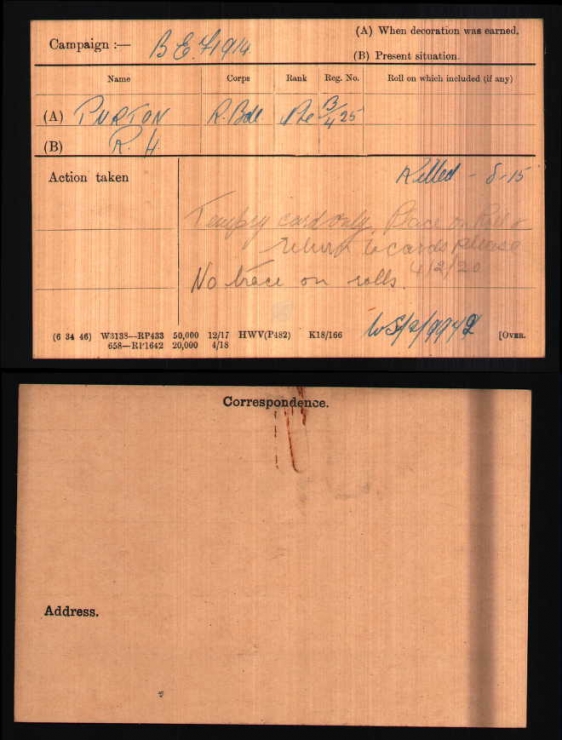 Campaign :— B.E.F 1914
(A) When decoration was earned.
(B) Present situation.
Name Corps Rank Reg. No. Roll on which included (if any)
(A) PURTON R. Bde Pte B/425
(B) R. H
Action taken
Killed - 8-15
Tempry card only. on Roll &
return to cards please
4/2/20
No trace on rolls.
(6 34 46) W3138—RP433 50,000 12/17 HWV(P482) K18/166 [OVER.
658—RP1642 20,000 4/18
Correspondence.
Address.